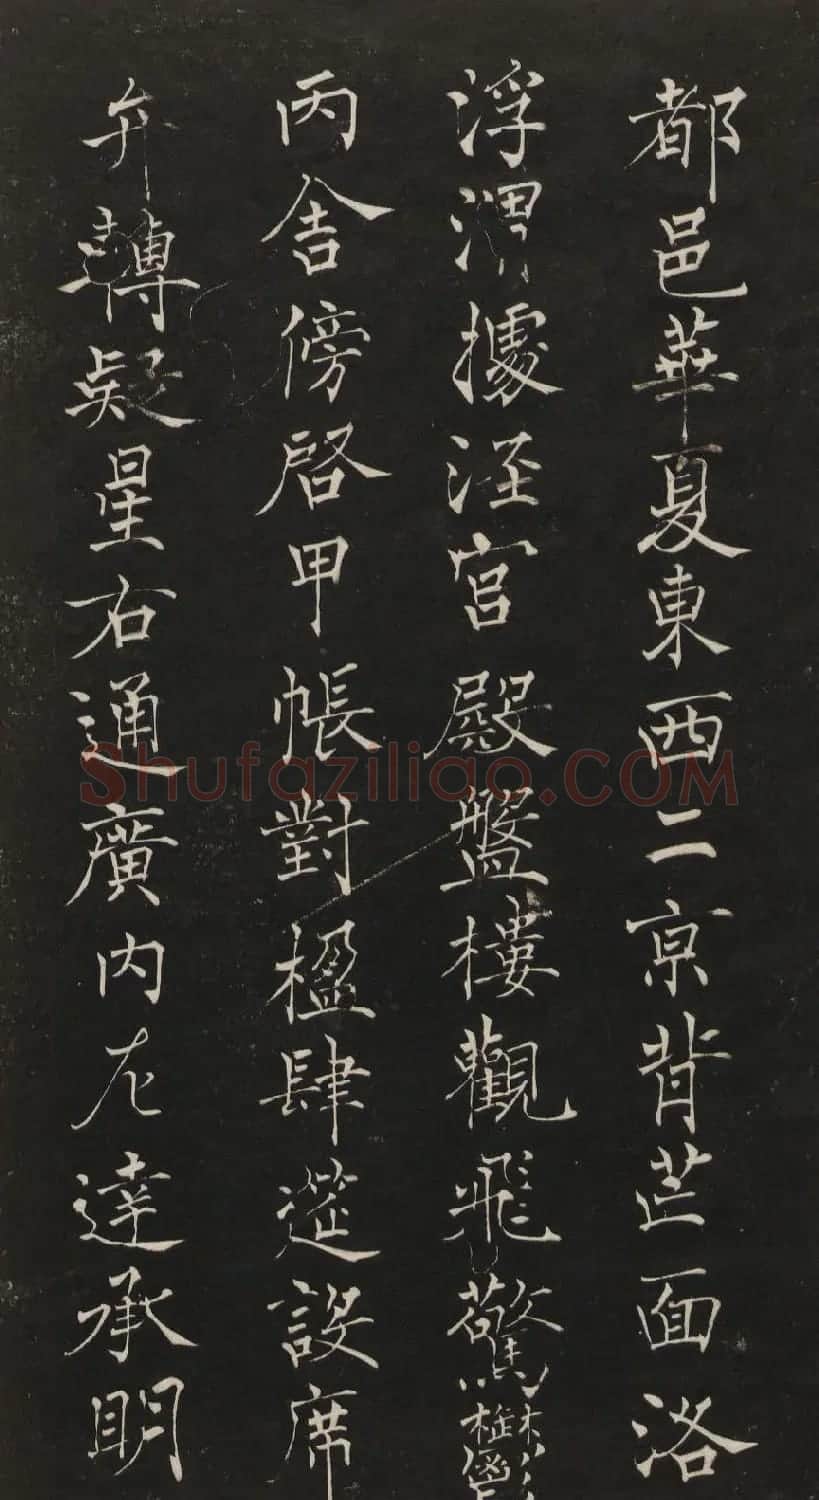 都邑華夏東西二京背芒面洛
浮渭據涇宮殿盤樓觀飛驚鬱
丙舍傍啓甲帳對楹肆筵設席
弁轉疑星右通廣內左達承明
Shufaziliao.COM